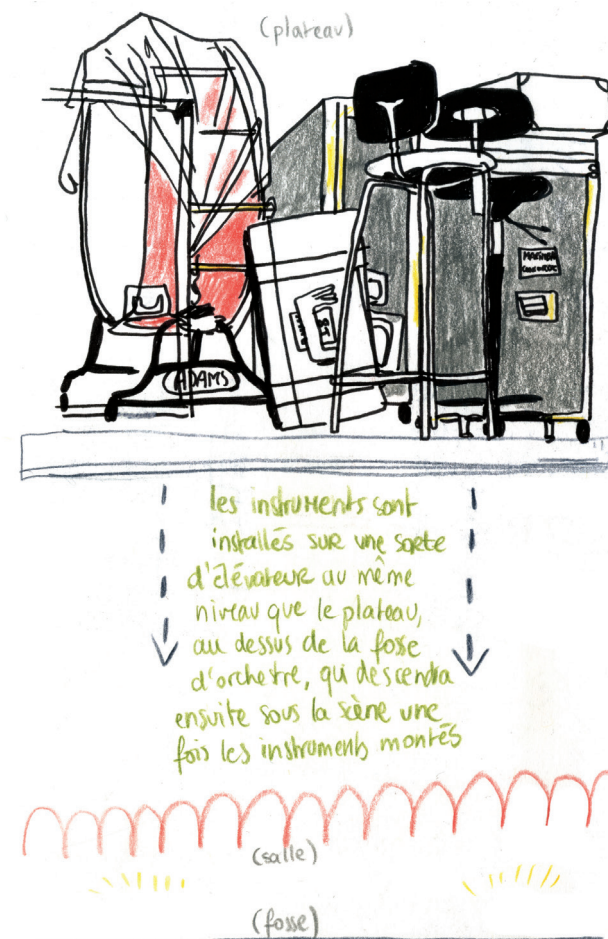 (plateau)
ADAMS
les instruments sont
installés sur une sorte
d'élévateur au même
niveau que le plateau,
au dessus de la fosse
d'orchestre, qui descendra
ensuite sous la scène une
fois les instruments montés
(salle)
(fosse)